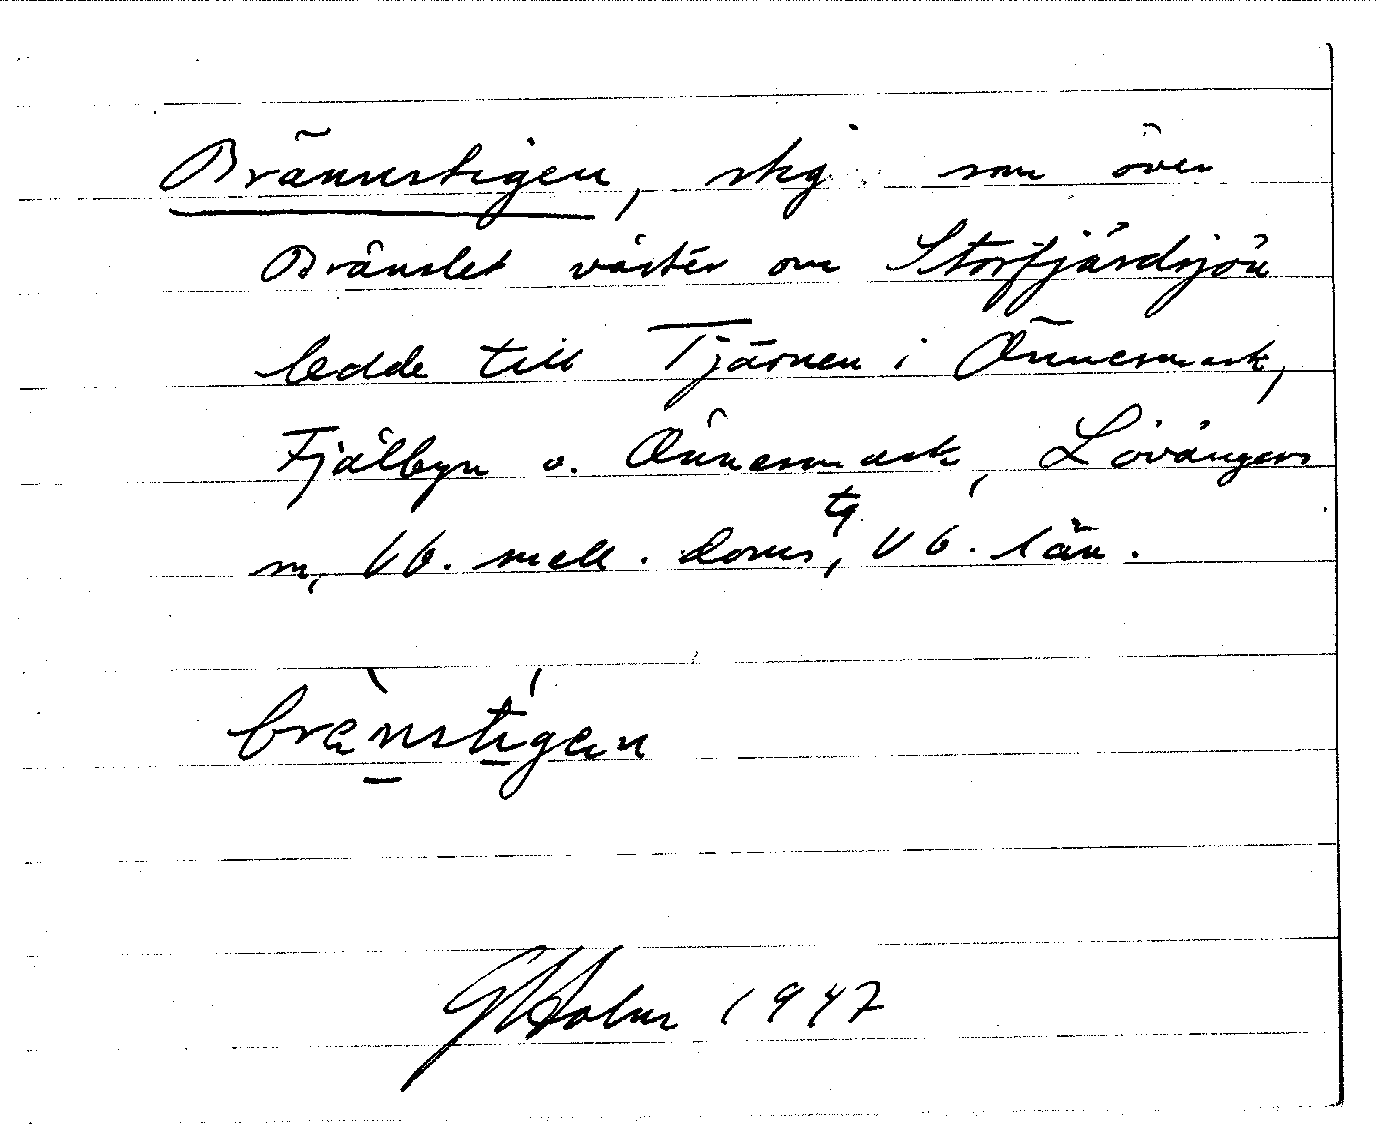 Brännstigen, stig som över
Brånslet väster om Storfjärdsjön
ledde till Tjärnen i Önnesmark,
Fjälbyn o. Önnesmark, Lövångers
sn, Vb. mell. doms, tg Vb. län.
brä̀nstígän
G Holm 1947